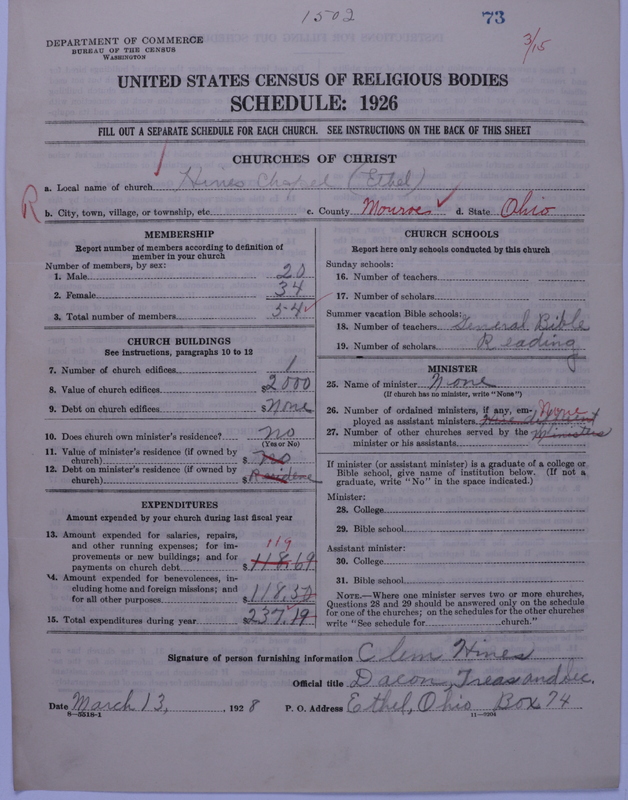 1502 73 3/15
DEPARTMENT OF COMMERCE
BUREAU OF THE CENSUS
WASHINGTON
UNITED STATES CENSUS OF RELIGIOUS BODIES
SCHEDULE: 1926
FILL OUT A SEPARATE SCHEDULE FOR EACH CHURCH. SEE INSTRUCTIONS ON THE BACK OF THIS SHEET
CHURCHES OF CHRIST
a. Local name of church Hines Chapel (Ethel)
R b. City, town, village, or township, etc. c. County Monroe d. State Ohio
MEMBERSHIP
Report number of members according to definition of
member in your church
Number of members, by sex:
1. Male 20
2. Female 34
3. Total number of members 54
CHURCH BUILDINGS
See instructions, paragraphs 10 to 12
7. Number of church edifices 1
8. Value of church edifices $2000
9. Debt on church edifices $None
10. Does church own minister's residence? no
(Yes or No)
11. Value of minister's residence (if owned by
church) $ No
12. Debt on minister's residence (if owned by
church) $ Residence
EXPENDITURES
Amount expended by your church during last fiscal year
13. Amount expended for salaries, repairs,
and other running expenses; for im-
provements or new buildings; and for 119
payments on church debt $118,69
14. Amount expended for benevolences, in-
cluding home and foreign missions; and
for all other purposes $118,32
15. Total expenditures during year $237,19
CHURCH SCHOOLS
Report here only schools conducted by this church
Sunday schools:
16. Number of teachers
17. Number of scholars
Summer vacation Bible schools:
18. Number of teachers General Bible
19. Number of scholars Reading
MINISTER
25. Name of minister None
(If church has no minister, write "None")
26. Number of ordained ministers, if any, em- None
ployed as assistant ministers
27. Number of other churches served by the Ministers
minister or his assistants
If minister (or assistant minister) is a graduate of a college or
Bible school, give name of institution below. (If not a
graduate, write "No" in the space indicated.)
Minister:
28. College
29. Bible school
Assistant minister:
30. College
31. Bible school
NOTE.—Where one minister serves two or more churches,
Questions 28 and 29 should be answered only on the schedule
for one of the churches; on the schedules for the other churches
write "See schedule for church."
Signature of person furnishing information Clem Hines
Official title Dacon, Treas and Sec.
Date March 13, , 1928 P. O. Address Ethel, Ohio Box 74
8—5518-1 11—9204